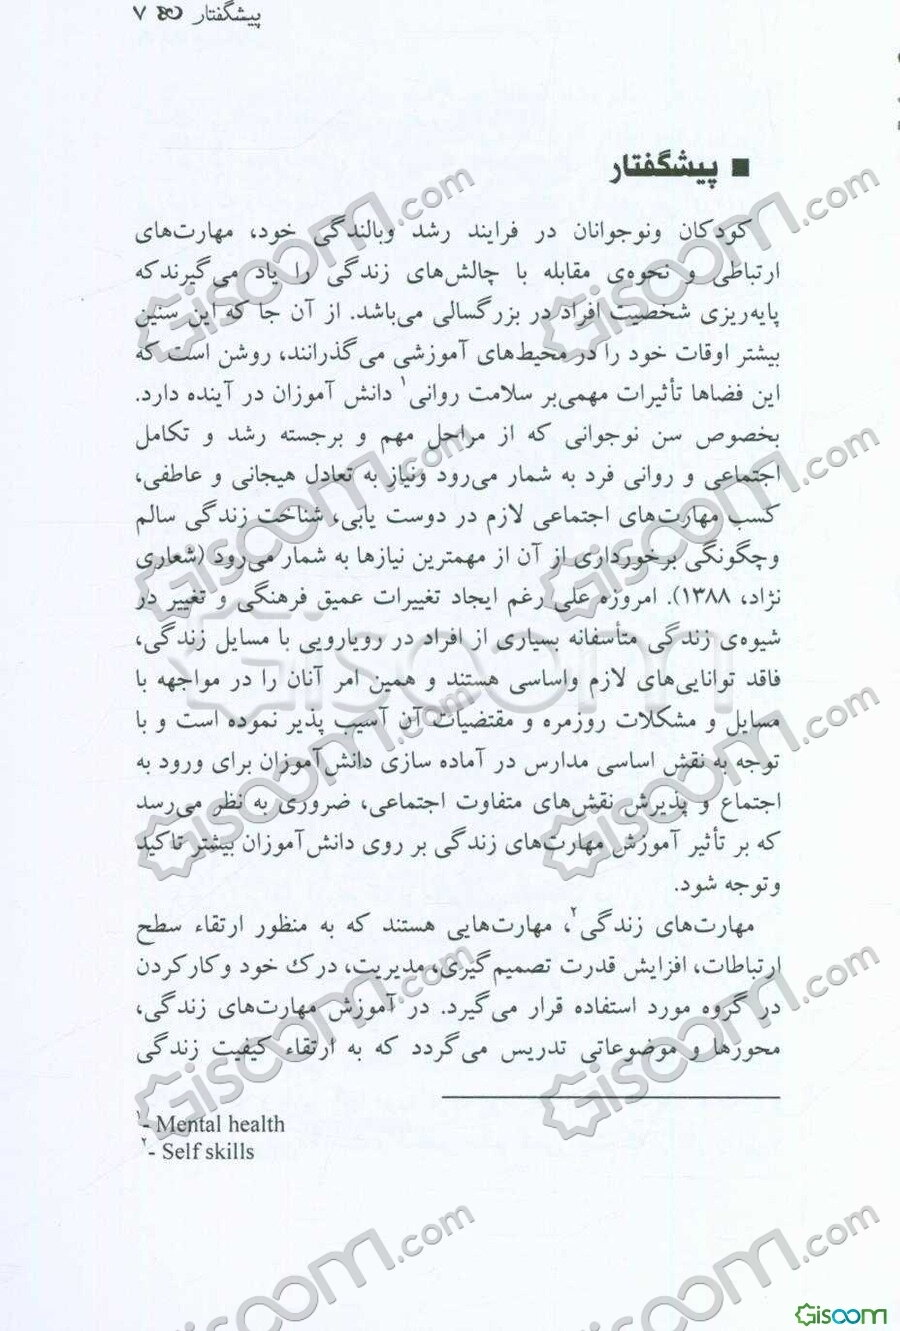 پیشگفتار ۷
■ پیشگفتار
کودکان ونوجوانان در فرایند رشد وبالندگی خود، مهارت‌های
ارتباطی و نحوه‌ی مقابله با چالش‌های زندگی را یاد می‌گیرندکه
پایه‌ریزی شخصیت افراد در بزرگسالی می‌باشد. از آن جا که این سنین
بیشتر اوقات خود را در محیط‌های آموزشی می‌گذرانند، روشن است که
این فضاها تأثیرات مهمی‌بر سلامت روانی۱ دانش آموزان در آینده دارد.
بخصوص سن نوجوانی که از مراحل مهم و برجسته رشد و تکامل
اجتماعی و روانی فرد به شمار می‌رود ونیاز به تعادل هیجانی و عاطفی،
کسب مهارت‌های اجتماعی لازم در دوست یابی، شناخت زندگی سالم
وچگونگی برخورداری از آن از مهمترین نیازها به شمار می‌رود (شعاری
نژاد، ۱۳۸۸). امروزه علی رغم ایجاد تغییرات عمیق فرهنگی و تغییر در
شیوه‌ی زندگی متأسفانه بسیاری از افراد در رویارویی با مسایل زندگی،
فاقد توانایی‌های لازم واساسی هستند و همین امر آنان را در مواجهه با
مسایل و مشکلات روزمره و مقتضیات آن آسیب پذیر نموده است و با
توجه به نقش اساسی مدارس در آماده سازی دانش‌آموزان برای ورود به
اجتماع و پذیرش نقش‌های متفاوت اجتماعی، ضروری به نظر می‌رسد
که بر تأثیر آموزش مهارت‌های زندگی بر روی دانش‌آموزان بیشتر تاکید
وتوجه شود.
مهارت‌های زندگی۲، مهارت‌هایی هستند که به منظور ارتقاء سطح
ارتباطات، افزایش قدرت تصمیم‌گیری، مدیریت، درک خود وکارکردن
در گروه مورد استفاده قرار می‌گیرد. در آموزش مهارت‌های زندگی،
محورها و موضوعاتی تدریس می‌گردد که به ارتقاء کیفیت زندگی
۱- Mental health
۲- Self skills
Gisoom.com
Gisoom